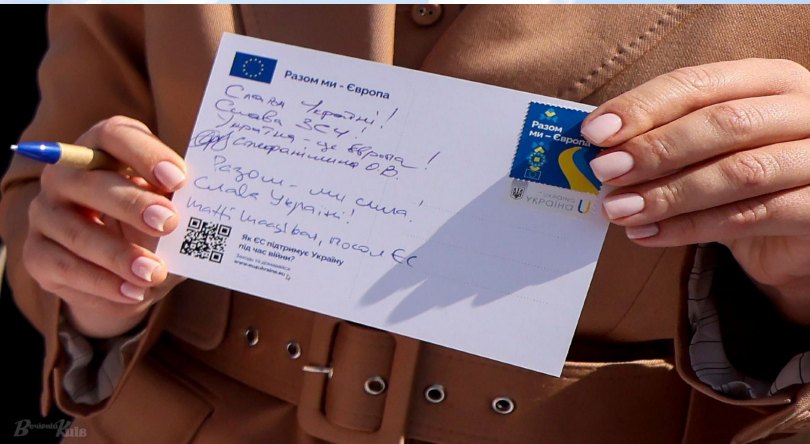 Разом ми – Європа
Слава Україні!
Слава ЗСУ!
Україна – це Європа!
Стефанішина О.В.
Разом – ми сила!
Слава Україні!
Matti Maasikas, посол ЄС
Як ЄС підтримує Україну
під час війни?
Разом
ми – Європа
УКРАЇНА U
Вечірній Київ